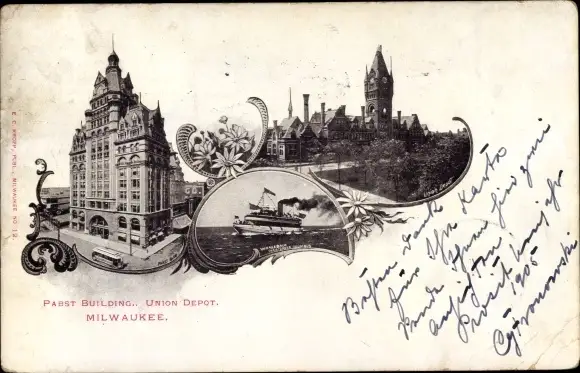 E. C. KROPP, PUBL., MILWAUKEE NO. 12
UNION DEPOT
PABST BUILDING., UNION DEPOT.
MILWAUKEE.
Besten Dank
für Ihre Karte
Sende Ihnen hier zwei
Ansichten.
Prosit Neujahr
1905